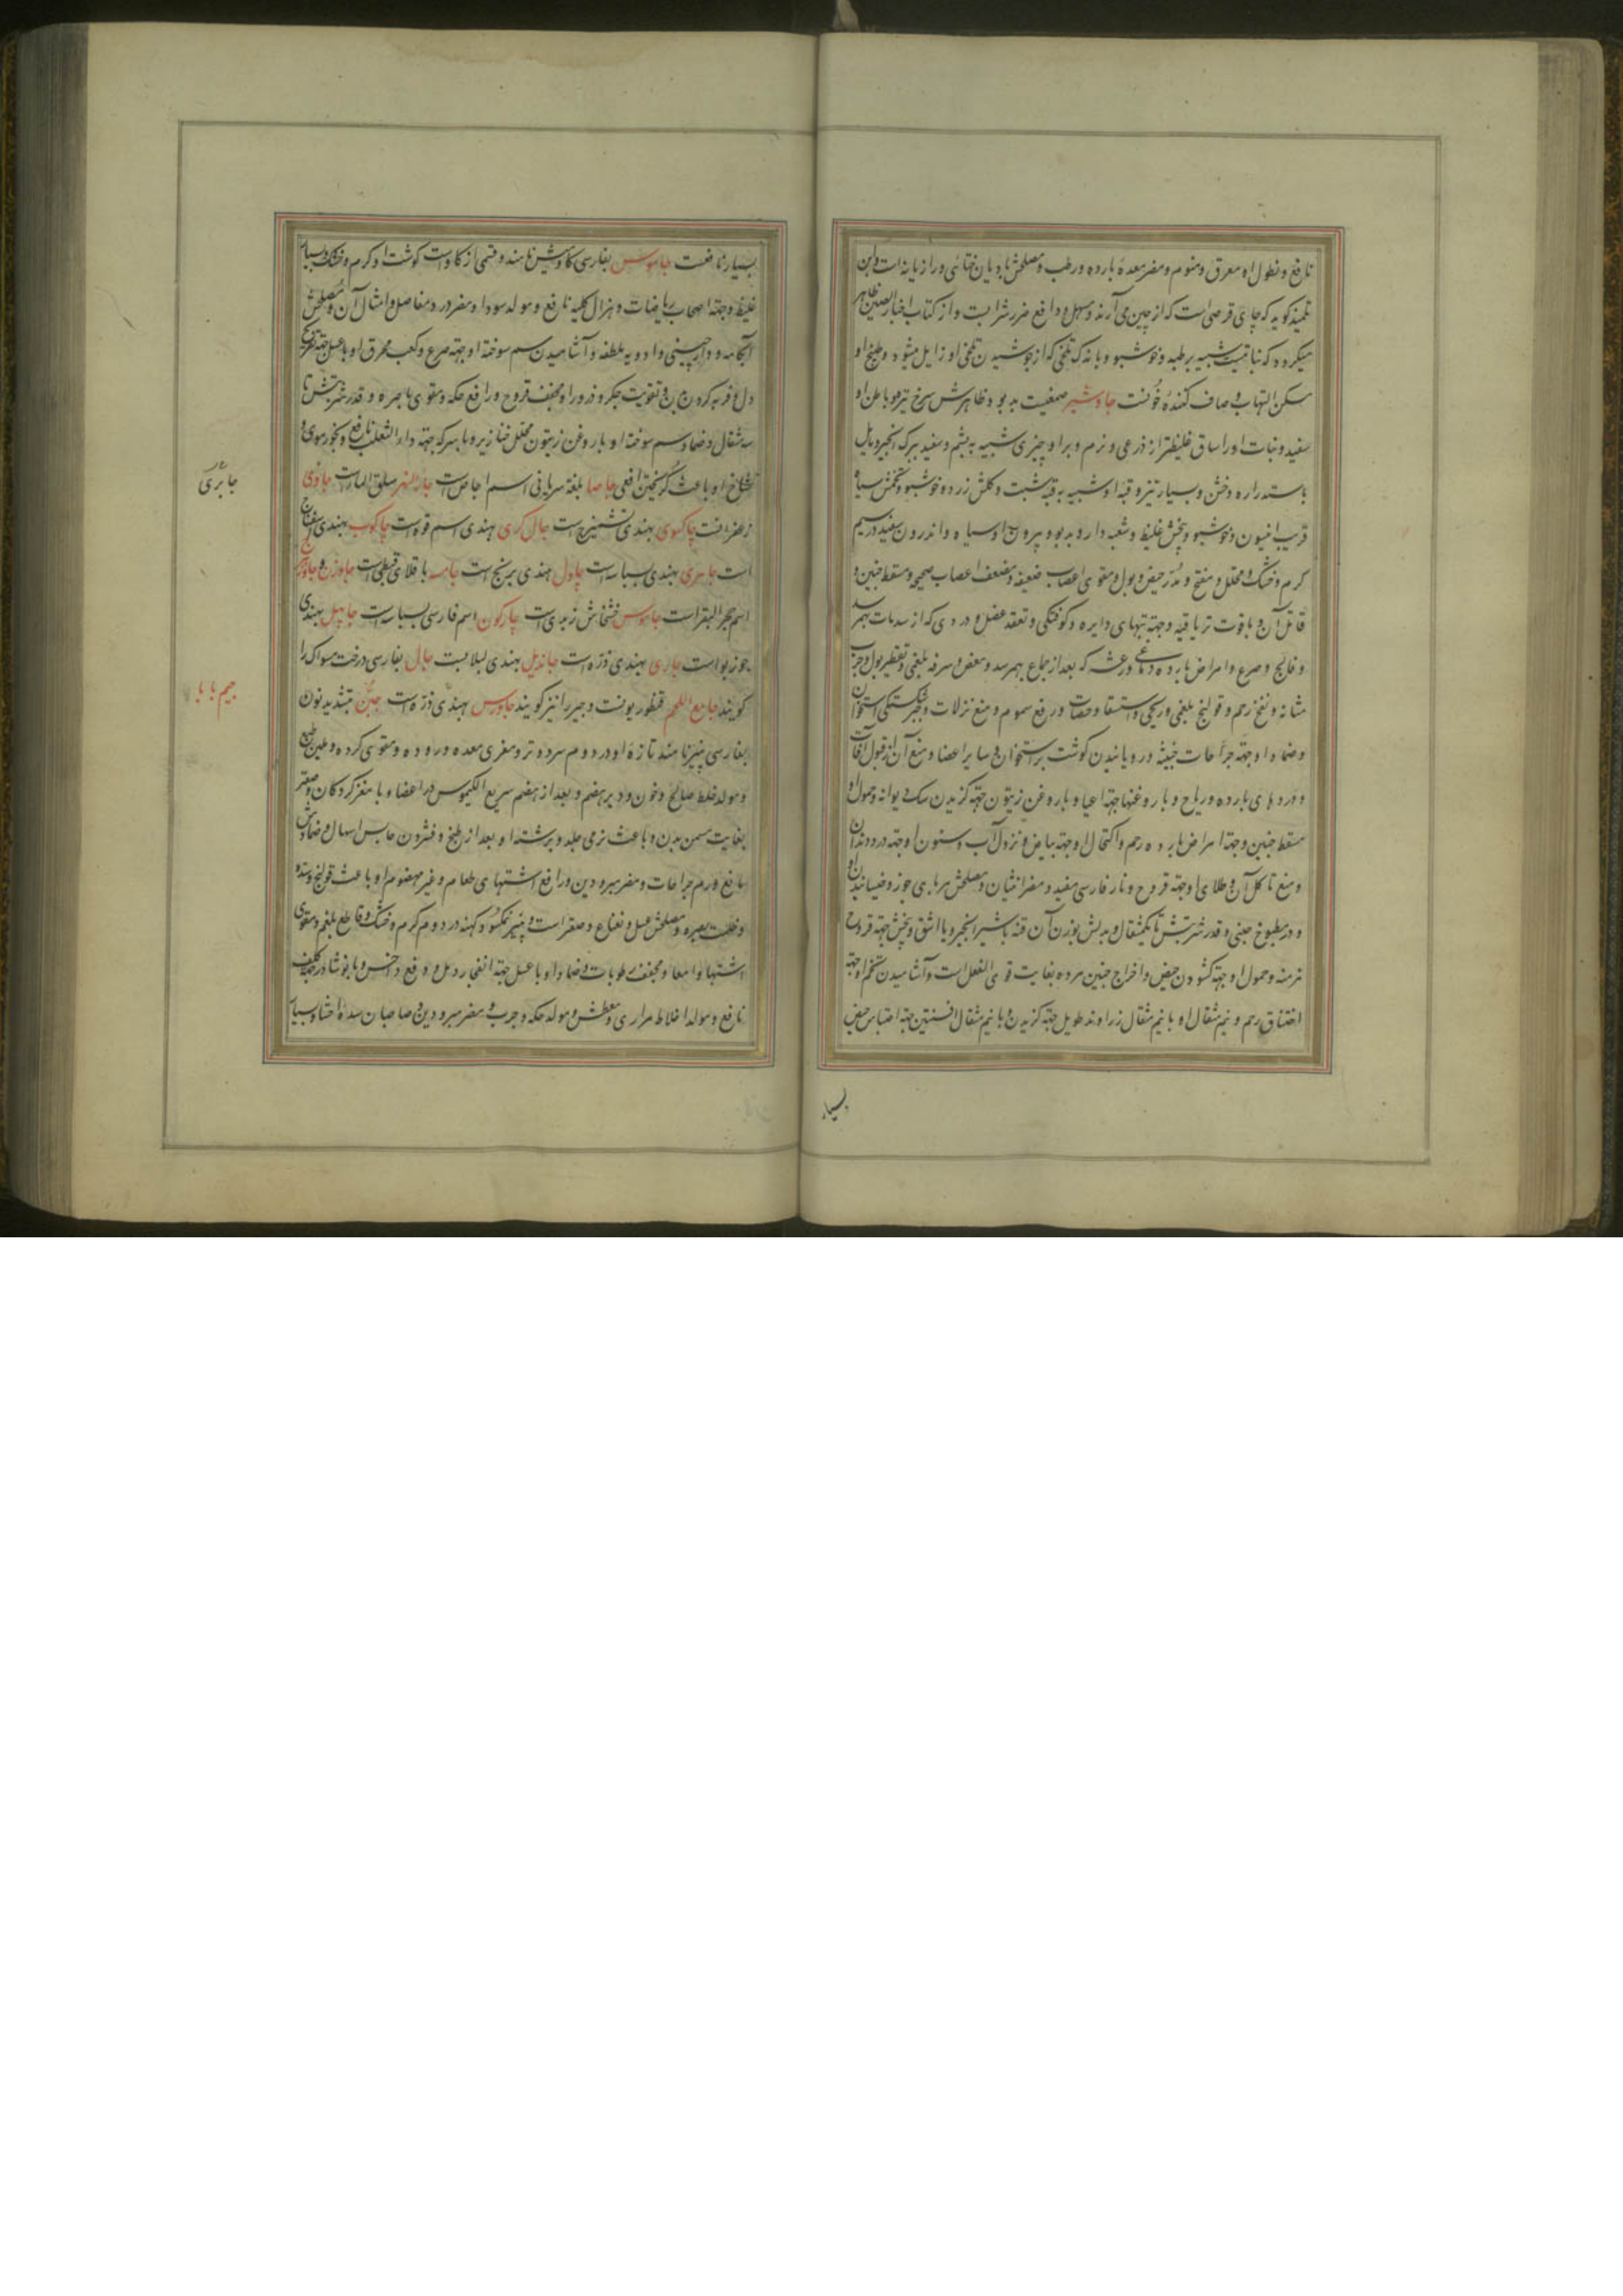 نافع و نطول او معرق و منوم و مضر معده بارده و رطب و مصلحش بادیان ختائی و رازیانه است و ابن
تلمیذ کوید که چای قرصی است که از چین می آرند و مسهل و دافع ضرر شرابست و از کتاب اخبار الصین ظاهر
میکردد که نباتیست شبیه برطبه و خوشبو و با اندک تلخی که از جوشیدن تلخی او زایل میشود و طبیخ او
مسکن التهاب و صاف کننده خونست جاوشیر صمغیست بدبو و ظاهرش سرخ تیره و باطن او
سفید و نبات او را ساق غلیظتر از ذرعی و نرم و بر او چیزی شبیه به پشم و سفید و برک انجیر و مایل
باستداره و خشن و بسیار تیز و قبه او شبیه به قبه شبت و کلش زرد و خوشبو و تخمش سیاه
قریب بانیسون و خوشبو و بیخش غلیظ و شعبه دار و بدبو و بیرون او سیاه و اندرون سفید در سیم
کرم و خشک و محلل و مفتح و مدر حیض و بول و مقوی اعصاب ضعیفه و مضعف اعصاب صحیحه و مسقط جنین و
قاتل آن و با قوت تریاقیه و جهته تبهای دایره و کوفتکی و تعقد عضل و دردی که از صدمات بهم رسد
و فالج و صرع و امراض بارده دماغی و رعشه که بعد از جماع بهم رسد و مغص و سرفه بلغمی و تقطیر بول و جرب
مثانه و نفخ رحم و قولنج بلغمی و ریحی و استسقا و حصات و رفع سموم و منع نزلات و جبر شکستکی استخوان
و ضماد او جهته جراحات خبیثه و رویانیدن کوشت بر استخوان و سایر اعضا و منع آن از قبول آفات
و دردهای بارده و ریاح و با روغنها جهته اعیا و با روغن زیتون جهته کزیدن سک دیوانه و حمول او
مسقط جنین و جهته امراض بارده رحم و اکتحال او جهته بیاض و نزول آب و سنون او جهته درد دندان
و منع تاکل آن و طلای او جهته قروح و نار فارسی مفید و مضر انثیان و مصلحش مربای جوز و خیسانیدن او
در مطبوخ جبنی و قدر شربتش تا یکمثقال و بدلش بوزن آن قنه با شیر انجیر و یا اشق و بیخش جهته قروح
مزمنه و حمول او جهته کشودن حیض و اخراج جنین مرده بغایت قوی الفعل است و آشامیدن تخم او جهته
اختناق رحم و نیم مثقال او با نیم مثقال زراوند طویل جهته کزیدن و با نیم مثقال افسنتین جهته احتباس حیض
بسیار
بسیار نافعست جاموس بفارسی کاومیش نامند و قسمی از کاو است کوشت او کرم و خشک و بسیار
غلیظ و جهته اصحاب ریاضات و هزال کلیه نافع و مولد سودا و مضر درد مفاصل و امثال آن و مصلحش
آبکامه و دارچینی و ادویه ملطفه و آشامیدن سم سوخته او جهته صرع و کعب محرق او با عسل جهته تفریح
دل و فربه کردن بدن و تقویت جکر و ذرور او مجفف قروح و رافع حکه و مقوی باصره و قدر شربتش تا
سه مثقال و ضماد سم سوخته او با روغن زیتون محلل خنازیر و با سرکه جهته داء الثعلب نافع و بخور موی و
شاخ او باعث کریختن افعی جاصا بلغة سریانی اسم اجاص است جار النهر سلق الماست جاوی
زعفرانست چاکسوی بهندی تشمیزج است جال کری هندی اسم قوه است چاکوب بهندی
است جاتری بهندی بسباسه است چاول هندی برنج است جامسه باقلای قبطی است جاوزن و جاوزهرج
اسم حجر البقر است جاموس خشخاش زبدی است چارکون اسم فارسی بسباسه است جایپل بهندی
جوزبوا است جاری بهندی ذره است جاندیل بهندی لبلابست جال بفارسی درخت مسواک را
کویند جامع اللحم قنطوریونست و جبیر را نیز کویند جاورس بهندی ذره است جبن بتشدید نون
بفارسی پنیر نامند تازه او در دوم سرد و تر و مغری معده و روده و مقوی کرده و ملین طبع
و مولد خلط صالح و خون و دیر هضم و بعد از هضم سریع الکیموس در اعضا و با مغز کردکان و صعتر
بغایت مسمن بدن و باعث نرمی جلد و برشته او بعد از طبخ و فشردن حابس اسهال و ضمادش
مانع ورم جراحات و مضر مبرودین و رافع اشتهای طعام و غیر مهضوم او باعث قولنج و سده
و ظلمت بصر و مصلحش عسل و نعناع و صعتر است و پنیر نمکسود و کهنه در دوم کرم و خشک و قاطع بلغم و مقوی
اشتها و امعا و مجفف رطوبات و ضماد او با عسل جهته انفجار دمل و رفع داخس و با نوشادر جهته کلف
نافع و مولد اخلاط مراری و معطش و مولد حکه و جرب و مضر مبرودین و صاحبان سده احشا و بسیار
جابری
جیم با با